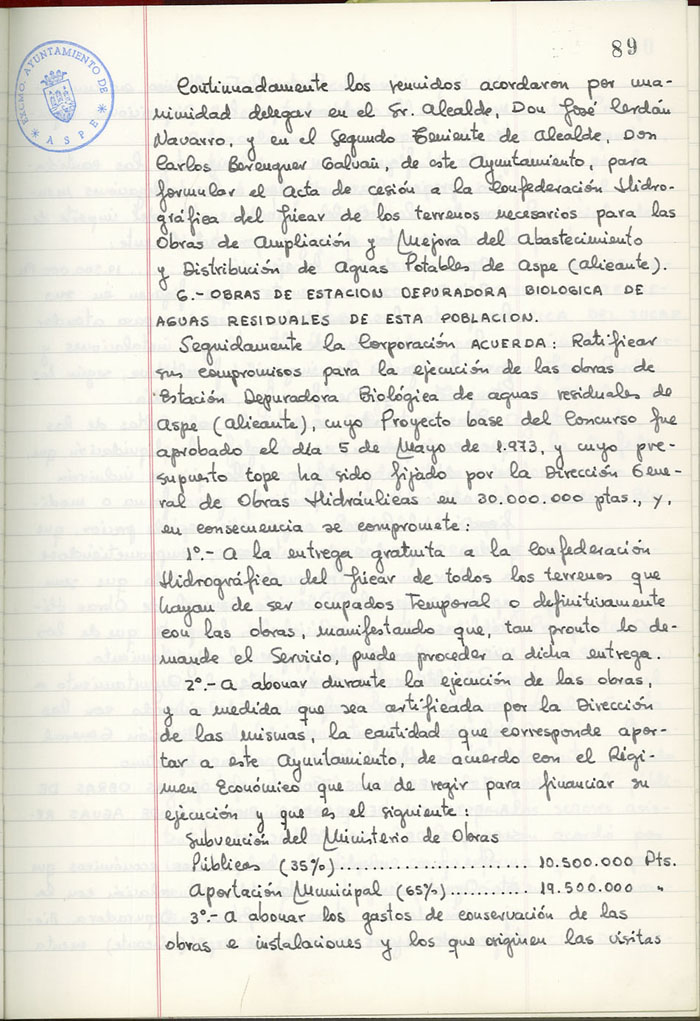 89
EXCMO. AYUNTAMIENTO DE
* ASPE *
Continuadamente los reunidos acordaron por una-
nimidad delegar en el Sr. Alcalde, Don José Cerdán
Navarro, y en el Segundo Teniente de Alcalde, Don
Carlos Berenguer Galvañ, de este Ayuntamiento, para
formular el Acta de cesión a la Confederación Hidro-
gráfica del Júcar de los terrenos necesarios para las
Obras de Ampliación y Mejora del Abastecimiento
y Distribución de Aguas Potables de Aspe (Alicante).
6.- OBRAS DE ESTACION DEPURADORA BIOLOGICA DE
AGUAS RESIDUALES DE ESTA POBLACION.
Seguidamente la Corporación ACUERDA: Ratificar
sus compromisos para la ejecución de las obras de
Estación Depuradora Biológica de aguas residuales de
Aspe (Alicante), cuyo Proyecto base del Concurso fue
aprobado el día 5 de Mayo de 1.973, y cuyo pre-
supuesto tope ha sido fijado por la Dirección Gene-
ral de Obras Hidráulicas en 30.000.000 ptas., y,
en consecuencia se compromete:
1º.- A la entrega gratuita a la Confederación
Hidrográfica del Júcar de todos los terrenos que
hayan de ser ocupados Temporal o definitivamente
con las obras, manifestando que, tan pronto lo de-
mande el Servicio, puede proceder a dicha entrega.
2º.- A abonar durante la ejecución de las obras,
y a medida que sea certificada por la Dirección
de las mismas, la cantidad que corresponde apor-
tar a este Ayuntamiento, de acuerdo con el Régi-
men Económico que ha de regir para financiar su
ejecución y que es el siguiente:
Subvención del Ministerio de Obras
Públicas (35%)........................ 10.500.000 Pts.
Aportación Municipal (65%).......... 19.500.000 "
3º.- A abonar los gastos de conservación de las
obras e instalaciones y los que originen las visitas